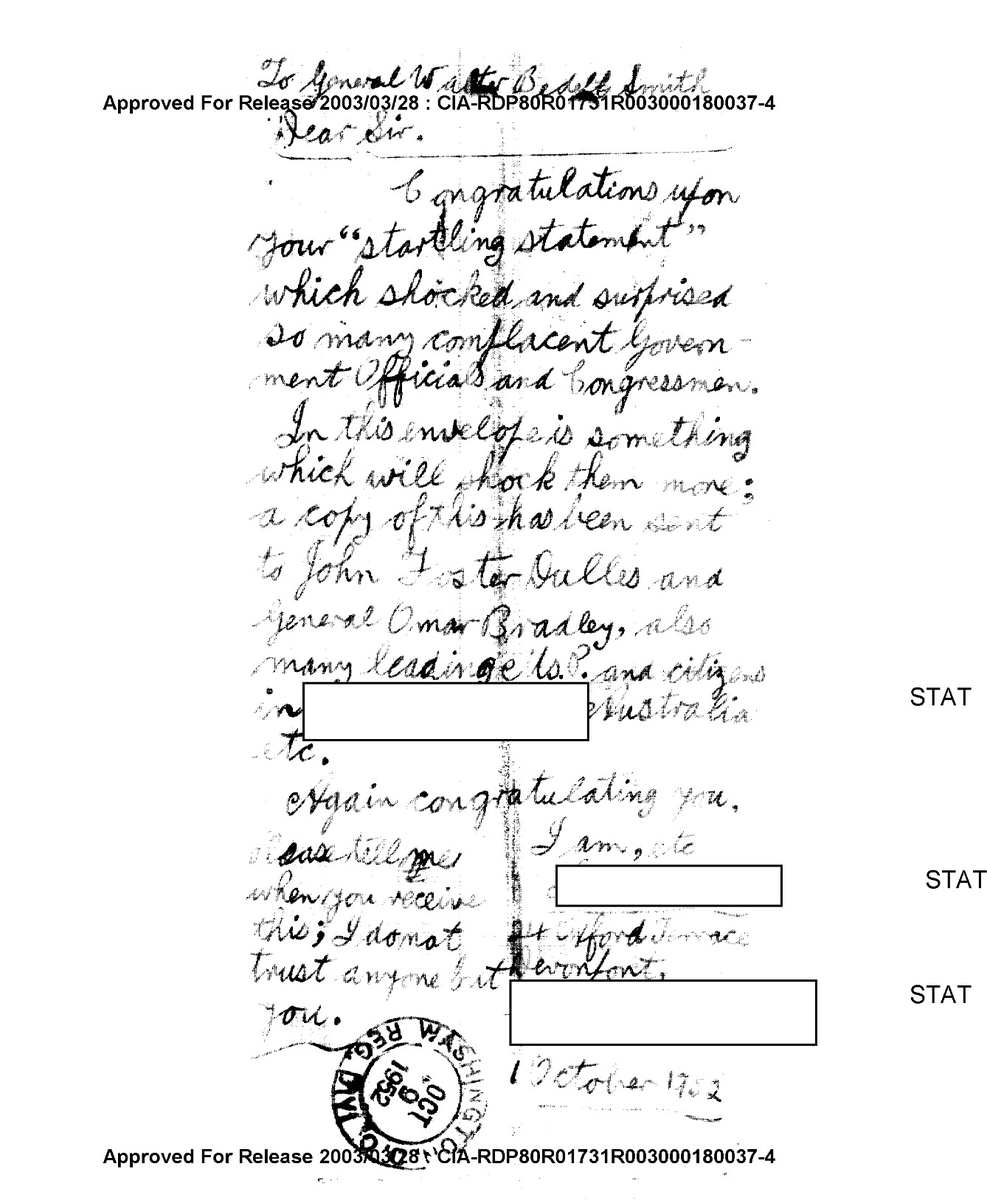 To General Walter Bedell Smith
Approved For Release 2003/03/28 : CIA-RDP80R01731R003000180037-4
Dear Sir.
Congratulations upon
your “startling statement”
which shocked and surprised
so many complacent Govern-
ment Officials and Congressmen.
In this envelope is something
which will shock them more;
a copy of this has been sent
to John Foster Dulles and
General Omar Bradley, also
many leading M.P. and citizens
in Australia
STAT
etc.
Again congratulating you,
I am, etc
Please tell me
when you receive
STAT
this; I do not
trust anyone but
you.
4 Oxford Terrace
Devonport.
STAT
1 October 1952
WASHINGTON D.C. REG. DIV.
OCT
9
1952
Approved For Release 2003/03/28 : CIA-RDP80R01731R003000180037-4